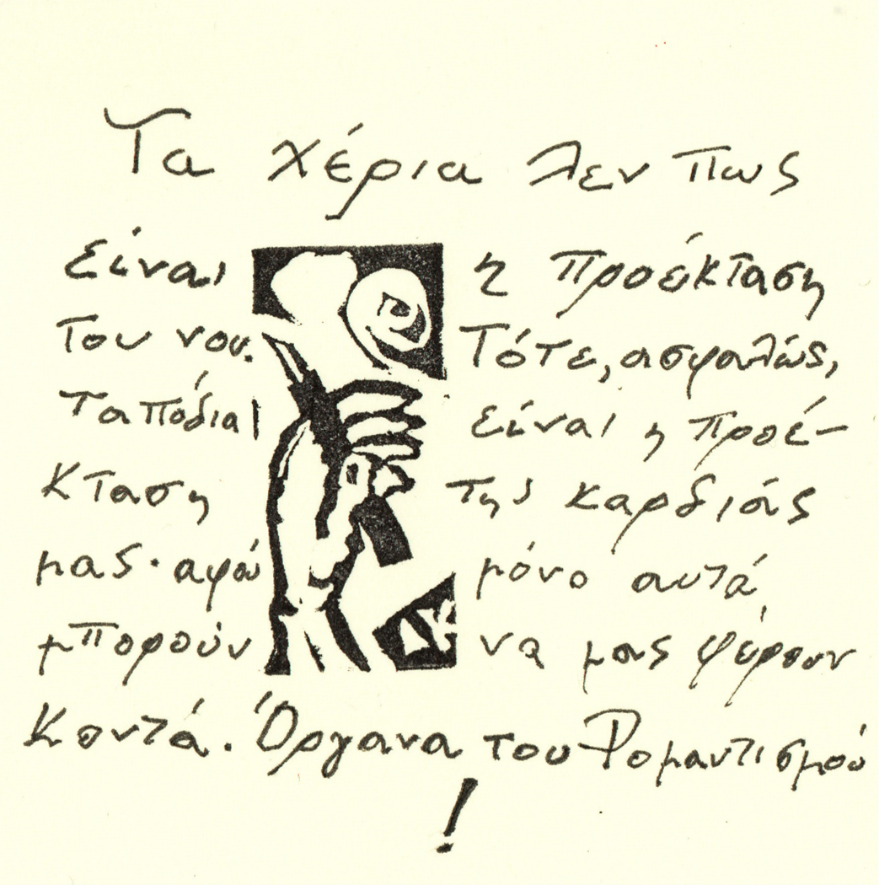 Τα χέρια λεν πως
είναι η προέκταση
του νου. Τότε, ασφαλώς,
τα πόδια είναι η προέ-
κταση της καρδιάς
μας· αφού μόνο αυτά
μπορούν να μας φέρουν
κοντά. Όργανα του Ρομαντισμού
!